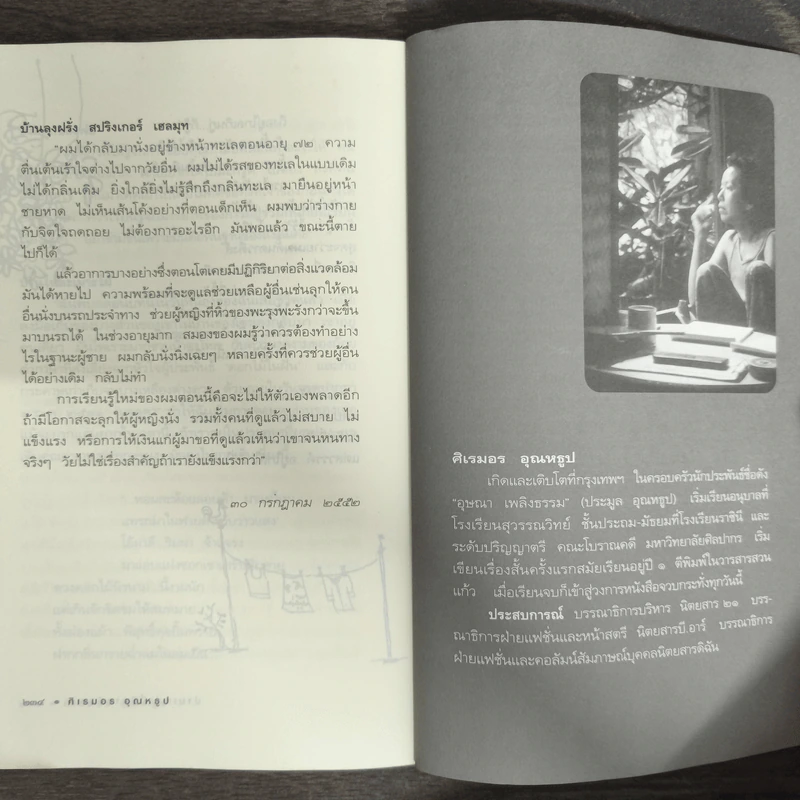 บ้านลุงฝรั่ง สปริงเกอร์ เฮลมุท
"ผมได้กลับมานั่งอยู่ข้างหน้าทะเลตอนอายุ ๗๒ ความ
ตื่นเต้นเร้าใจต่างไปจากวัยอื่น ผมไม่ได้รสของทะเลในแบบเดิม
ไม่ได้กลิ่นเดิม ยิ่งใกล้ยิ่งไม่รู้สึกถึงกลิ่นทะเล มายืนอยู่หน้า
ชายหาด ไม่เห็นเส้นโค้งอย่างที่ตอนเด็กเห็น ผมพบว่าร่างกาย
กับจิตใจถดถอย ไม่ต้องการอะไรอีก มันพอแล้ว ขณะนี้ตาย
ไปก็ได้
แล้วอาการบางอย่างซึ่งตอนโตเคยมีปฏิกิริยาต่อสิ่งแวดล้อม
มันได้หายไป ความพร้อมที่จะดูแลช่วยเหลือผู้อื่นเช่นลุกให้คน
อื่นนั่งบนรถประจำทาง ช่วยผู้หญิงที่หิ้วของพะรุงพะรังกว่าจะขึ้น
มาบนรถได้ ในช่วงอายุมาก สมองของผมรู้ว่าควรต้องทำอย่าง
ไรในฐานะผู้ชาย ผมกลับนั่งนิ่งเฉยๆ หลายครั้งที่ควรช่วยผู้อื่น
ได้อย่างเดิม กลับไม่ทำ
การเรียนรู้ใหม่ของผมตอนนี้คือจะไม่ให้ตัวเองพลาดอีก
ถ้ามีโอกาสจะลุกให้ผู้หญิงนั่ง รวมทั้งคนที่ดูแล้วไม่สบาย ไม่
แข็งแรง หรือการให้เงินแก่ผู้มาขอที่ดูแล้วเห็นว่าเขาจนหนทาง
จริงๆ วัยไม่ใช่เรื่องสำคัญถ้าเรายังแข็งแรงกว่า"
๓๐ กรกฎาคม ๒๕๕๒
๒๓๔ • ศิเรมอร อุณหธูป
ศิเรมอร อุณหธูป
เกิดและเติบโตที่กรุงเทพฯ ในครอบครัวนักประพันธ์ชื่อดัง
"อุษณา เพลิงธรรม" (ประมูล อุณหธูป) เริ่มเรียนอนุบาลที่
โรงเรียนสุวรรณวิทย์ ชั้นประถม-มัธยมที่โรงเรียนราชินี และ
ระดับปริญญาตรี คณะโบราณคดี มหาวิทยาลัยศิลปากร เริ่ม
เขียนเรื่องสั้นครั้งแรกสมัยเรียนอยู่ปี ๑ ตีพิมพ์ในวารสารสวน
แก้ว เมื่อเรียนจบก็เข้าสู่วงการหนังสือจวบกระทั่งทุกวันนี้
ประสบการณ์ บรรณาธิการบริหาร นิตยสาร ๒๑ บรร-
ณาธิการฝ่ายแฟชั่นและหน้าสตรี นิตยสารบี.อาร์ บรรณาธิการ
ฝ่ายแฟชั่นและคอลัมน์สัมภาษณ์บุคคลนิตยสารดิฉัน